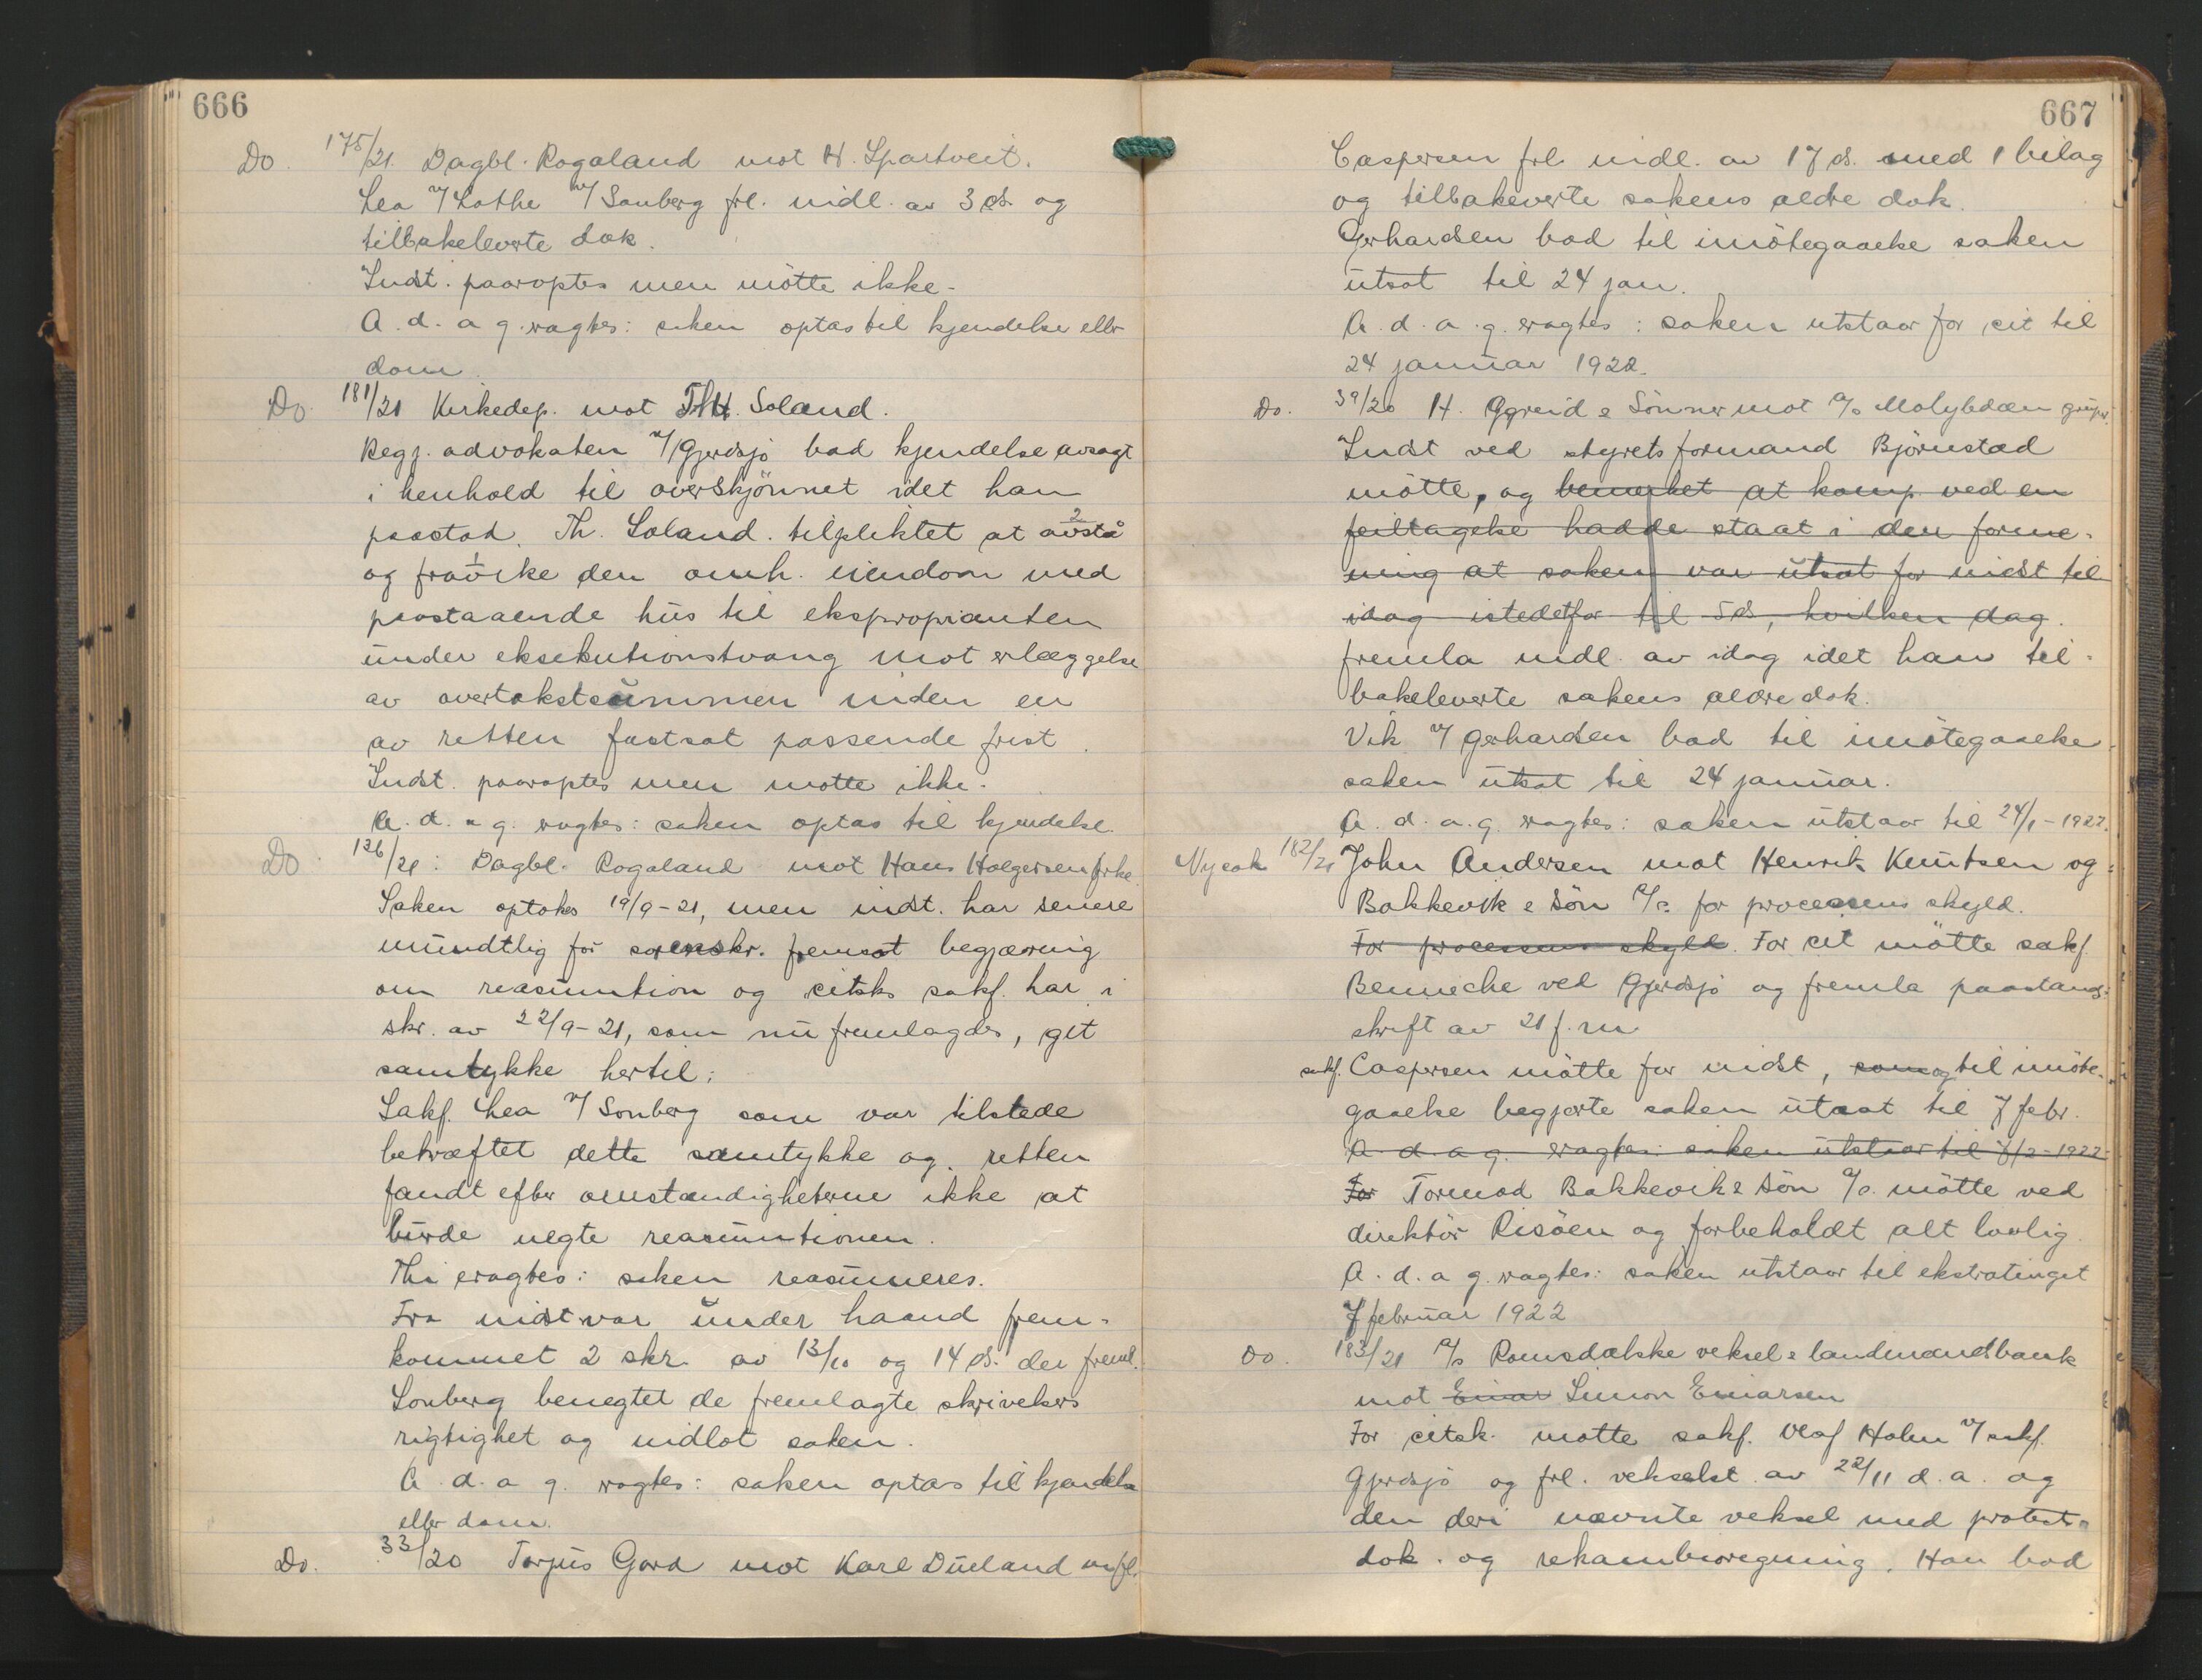 666
Do. 175/21. Dagbl. Rogaland mot H. Spartveit.
Lea v/ Lothe v/ Sonberg frl. indl. av 3 ds. og
tilbakeleverte dok.
Indst. paaroptes men mötte ikke.
A. d. a g. eragtes: saken optas til kjendelse eller
dom.
Do. 181/21 Kirkedep. mot Th. Soland.
Regj. advokaten v/ Gjerdsjö bad kjendelse avsagt
i henhold til overskjönnet idet han
paastod. Th. Soland. tilpliktet at avstå
og fravike den omh. eiendom med
paastaaende hus til eksproprianten
under eksekutionstvang mot erlæggelse
av overtakstsummen inden en
av retten fastsat passende frist.
Indst. paaroptes men mötte ikke.
A. d. a g. eragtes: saken optas til kjendelse.
Do. 126/21: Dagbl. Rogaland mot Hans Holgersen frke.
Saken optokes 19/9-21, men indst. har senere
mundtlig for sorenskr. fremsat begjæring
om reasumtion og citsks sakf. har i
skr. av 22/9-21, som nu fremlagdes, git
samtykke hertil.
Sakf. Lea v/ Sonberg som var tilstede
bekræftet dette samtykke og retten
fandt efter omstændigheterne ikke at
burde negte reasumtionen.
Thi eragtes: saken reasumeres.
Fra indst var under haand frem-
kommet 2 skr. av 13/10 og 14 ds. der freml.
Sonberg benegtet de fremlagte skrivelsers
rigtighet og indlot saken.
A. d. a g. eragtes: saken optas til kjendelse
eller dom.
Do. 33/20 Torjus Gard mot Karl Dueland m/fl.
667
Caspersen frl. indl. av 17 ds. med 1 bilag
og tilbakeverte sakens ældre dok.
Gerhardsen bad til imötegaaelse saken
utsat til 24 jan.
A. d. a. g. eragtes: saken utstaar for cit til
24 januar 1922.
Do. 39/20 H. Egreid & Sönner mot A/S Molybdæn gruper.
Indst ved styrets formand Björnstad
mötte, og bemerket at komp. ved en
feiltagelse hadde staat i den forme-
ning at saken var utsat for indst til
idag istedetfor til 5 ds, hvilken dag.
fremla indl. av idag idet han til-
bakeleverte sakens ældre dok.
Vik v/ Gerhardsen bad til imötegaaelse
saken utsat til 24 januar.
A. d. a. g. eragtes: saken utstaar til 24/1-1922.
Ny sak 182/21 John Andersen mot Henrik Knutsen og
Bakkevik & Sön A/S for processens skyld.
For processens skyld. For cit mötte sakf.
Bennecke ved Gjerdsjö og fremla paastands-
skrift av 21 f. m.
sakf. Caspersen mötte for indst, som og til imöte-
gaaelse begjærte saken utsat til 7 febr.
A. d. a g. eragtes: saken utstaar til 7/2-1922
For Tormod Bakkevik & Sön A/S. mötte ved
direktör Risöen og forbeholdt alt lovlig.
A. d. a g. eragtes: saken utstaar til ekstratinget
7 februar 1922
Do. 183/21 A/S Romsdalske veksel & landmandsbank
mot Einar Simon Einarsen
For citsk. mötte sakf. Olaf Holm v/ sakf.
Gjerdsjö og frl. vekselst. av 22/11 d. a. og
den deri nævnte veksel med protest-
dok. og rekambioregning. Han bad